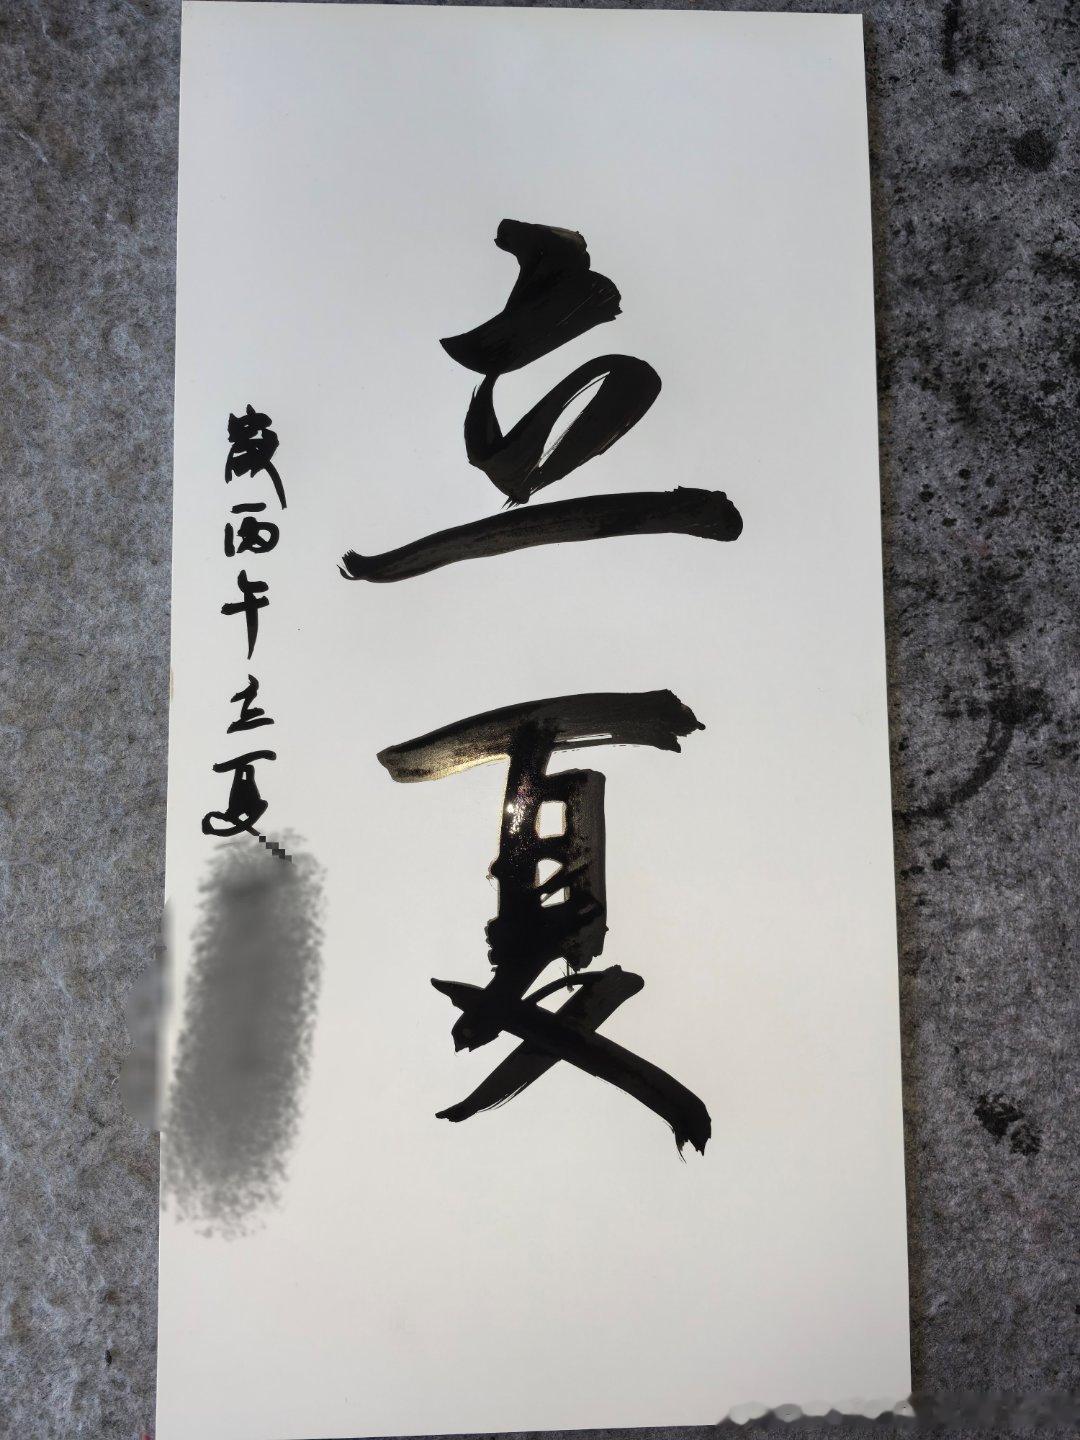 立夏
歲丙午立夏